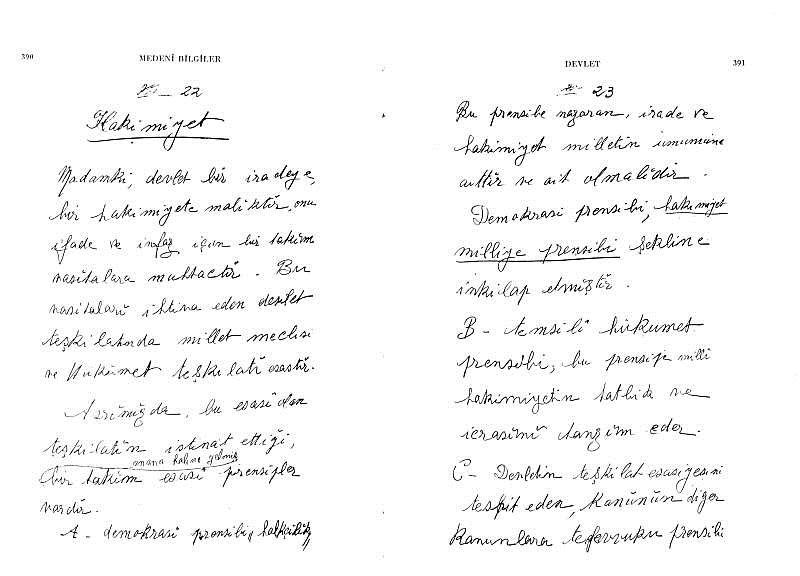 390
MEDENÎ BİLGİLER
22
Hakimiyet
Madamki, devlet bir iradeye,
bir hakimiyete maliktir, onu
ifade ve infaz için bir takım
vasıtalara muhtactır. Bu
vasıtaları ihtiva eden devlet
teşkilatında millet meclisi
ve Hukûmet teşkilatı esastır.
Asrımızda, bu esasi olan
teşkilatın istinat ettiği,
mana haline gelmiş
bir takım esasi prensipler
vardır.
A - demokrasi prensibi, halkçılık,
DEVLET
391
23
Bu prensibe nazaran, irade ve
hakimiyet milletin umumuna
aittir ve ait olmalıdır.
Demokrasi prensibi, hakimiyet
milliye prensibi şekline
inkilap etmiştir.
B - temsilî hükumet
prensibi, bu prensip milli
hakimiyetin tatbik ve
icrasını tanzim eder.
C - Devletin teşkilat esasiyesini
tespit eden, kanûnun diğer
kanunlara tefevvuku prensibi